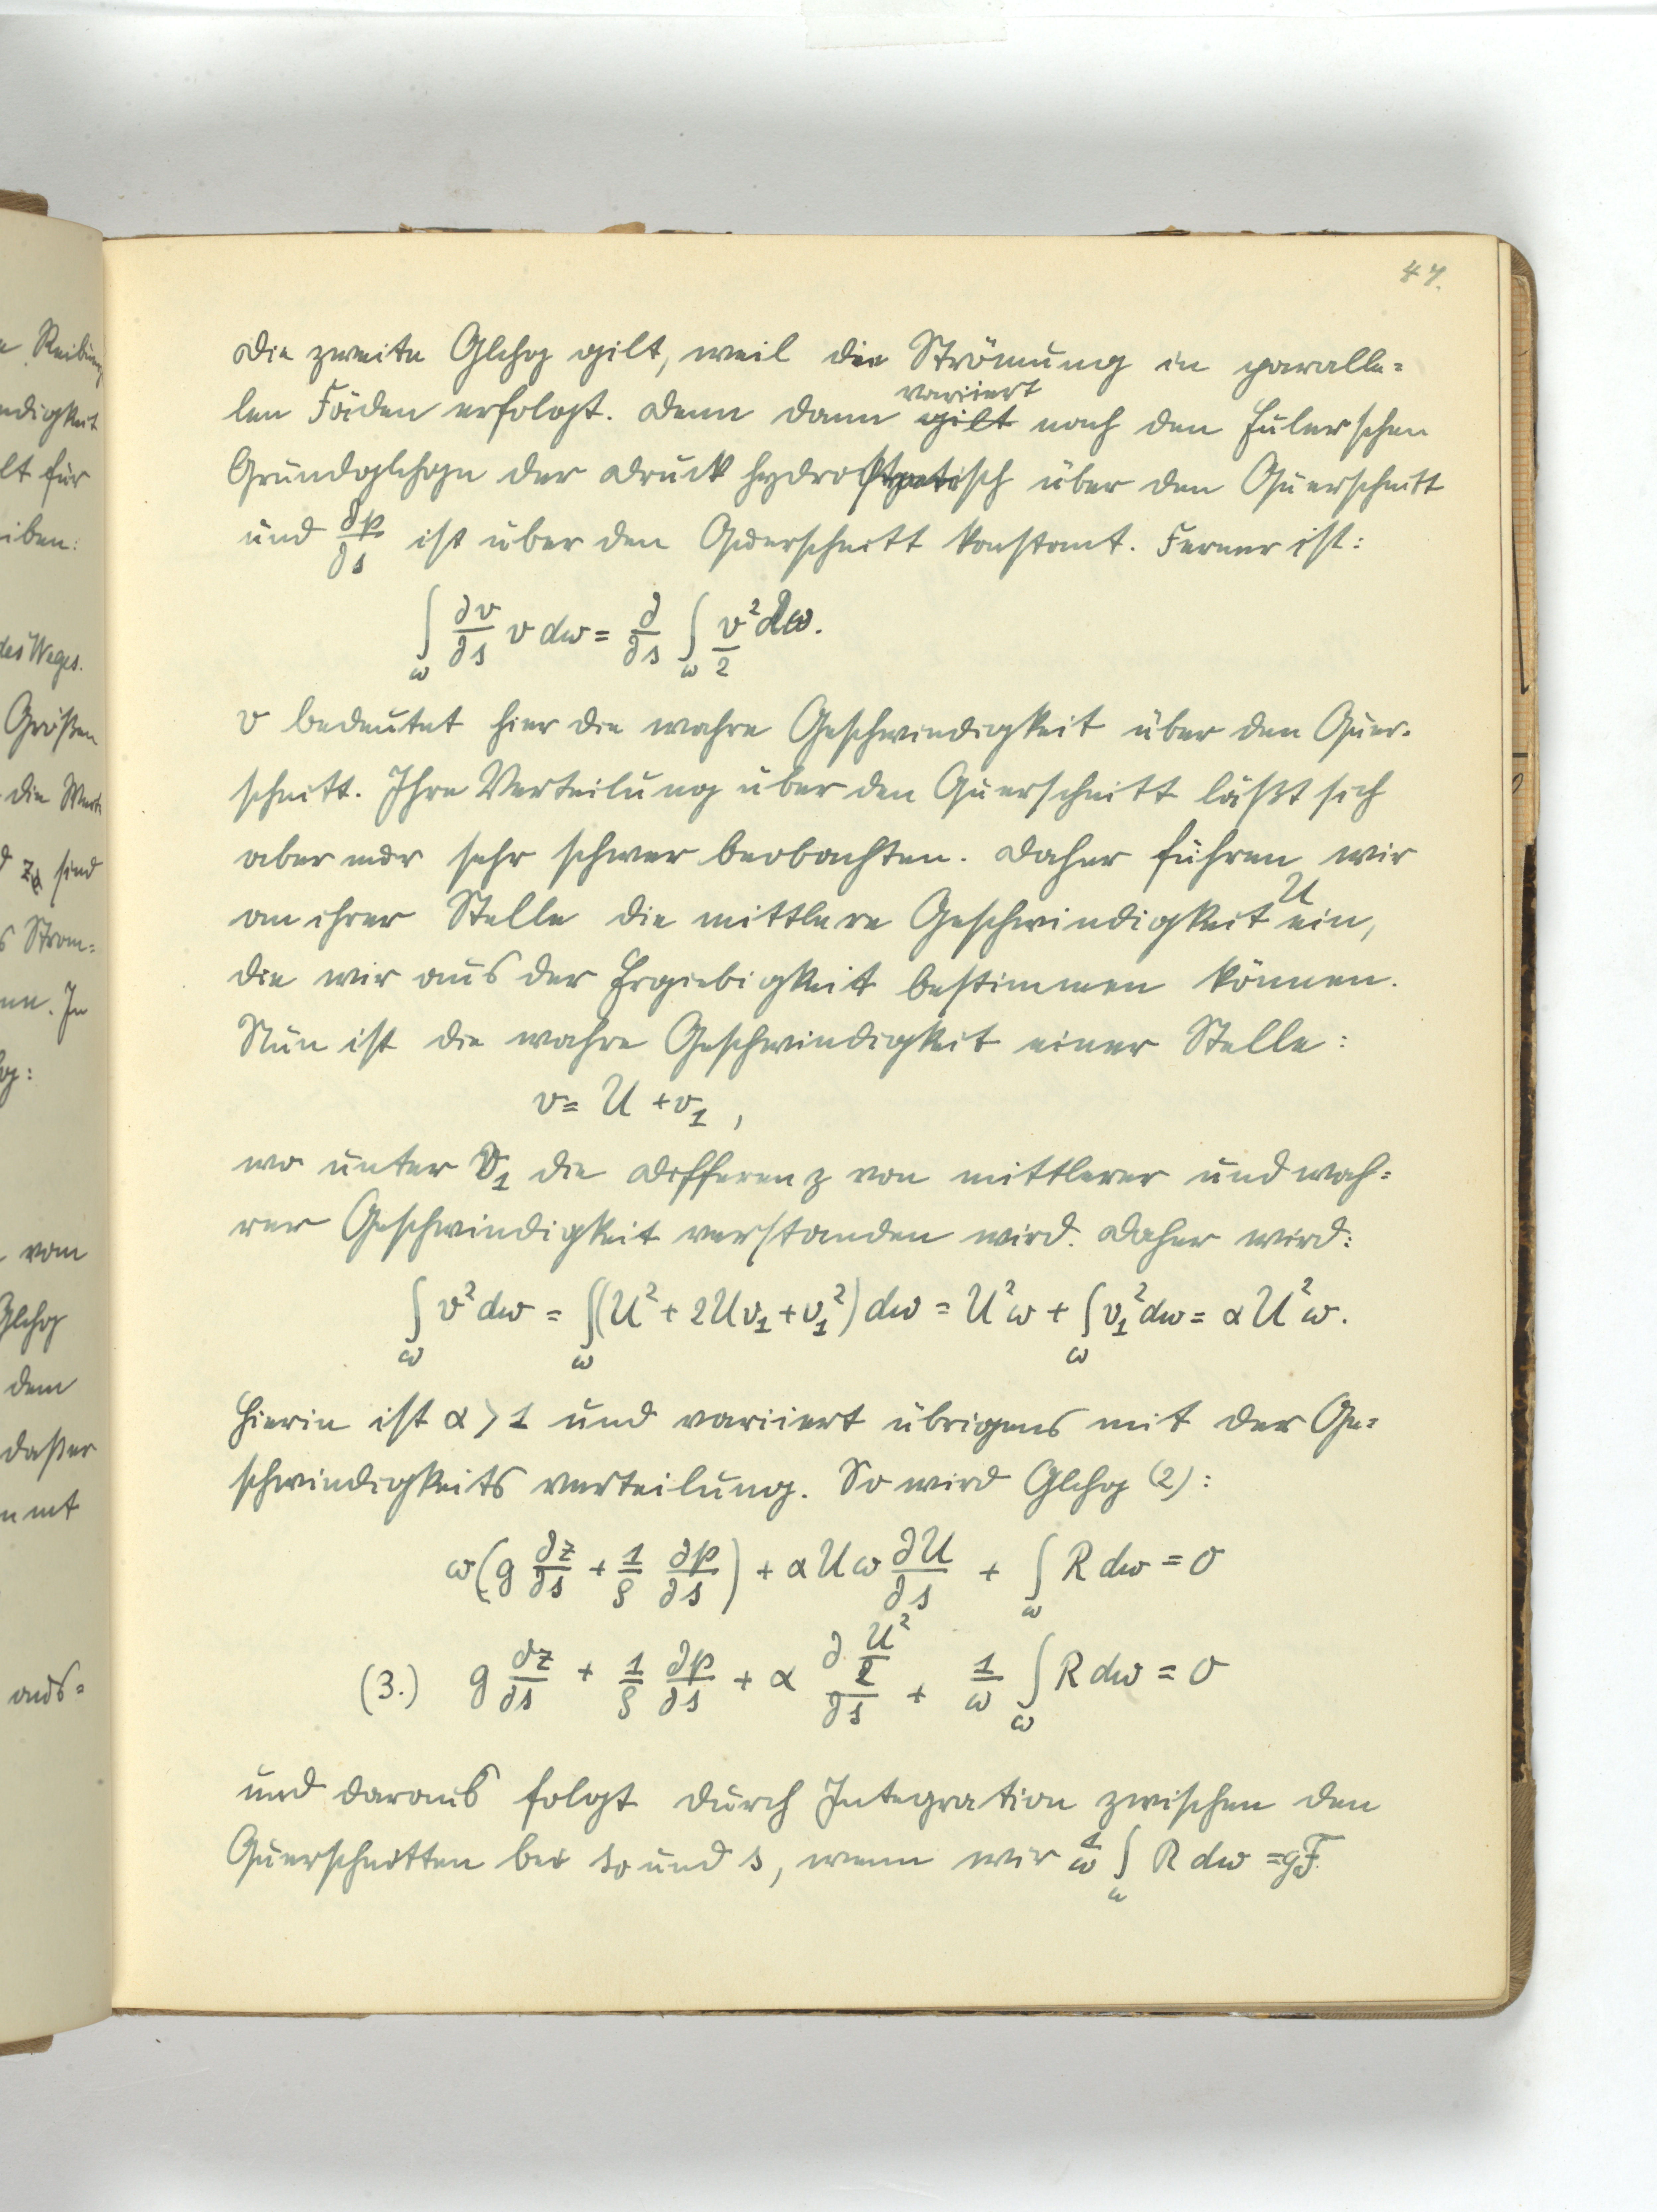 47.
Die zweite Glchg gilt, weil die Strömung in paralle=
len Fäden erfolgt. Denn dann variiert nach den Eulerschen
Grundglchgn der Druck hydrostatisch über den Querschnitt
und ∂p/∂s ist über den Querschnitt konstant. Ferner ist:
∫_ω ∂v/∂s v dω = ∂/∂s ∫_ω v²/2 dω.
v bedeutet hier die wahre Geschwindigkeit über den Quer-
schnitt. Ihre Verteilung über den Querschnitt läßt sich
aber nur sehr schwer beobachten. Daher führen wir
an ihrer Stelle die mittlere Geschwindigkeit U ein,
die wir aus der Ergiebigkeit bestimmen können.
Nun ist die wahre Geschwindigkeit einer Stelle:
v = U + v₁,
wo unter v₁ die Differenz von mittlerer und wah=
rer Geschwindigkeit verstanden wird. Daher wird:
∫_ω v² dω = ∫_ω (U² + 2Uv₁ + v₁²) dω = U²ω + ∫_ω v₁² dω = αU²ω.
Hierin ist α > 1 und variiert übrigens mit der Ge=
schwindigkeitsverteilung. So wird Glchg (2):
ω(g ∂z/∂s + 1/ρ ∂p/∂s) + αUω ∂U/∂s + ∫_ω R dω = 0
(3.) g ∂z/∂s + 1/ρ ∂p/∂s + α ∂ U²/2 / ∂s + 1/ω ∫_ω R dω = 0
und daraus folgt durch Integration zwischen den
Querschnitten bei s₀ und s, wenn wir 1/ω ∫_ω R dω = gF
Größen
des Weges.
lt für
iben:
die Werte
sind
vom
Glchg
dem
daßer